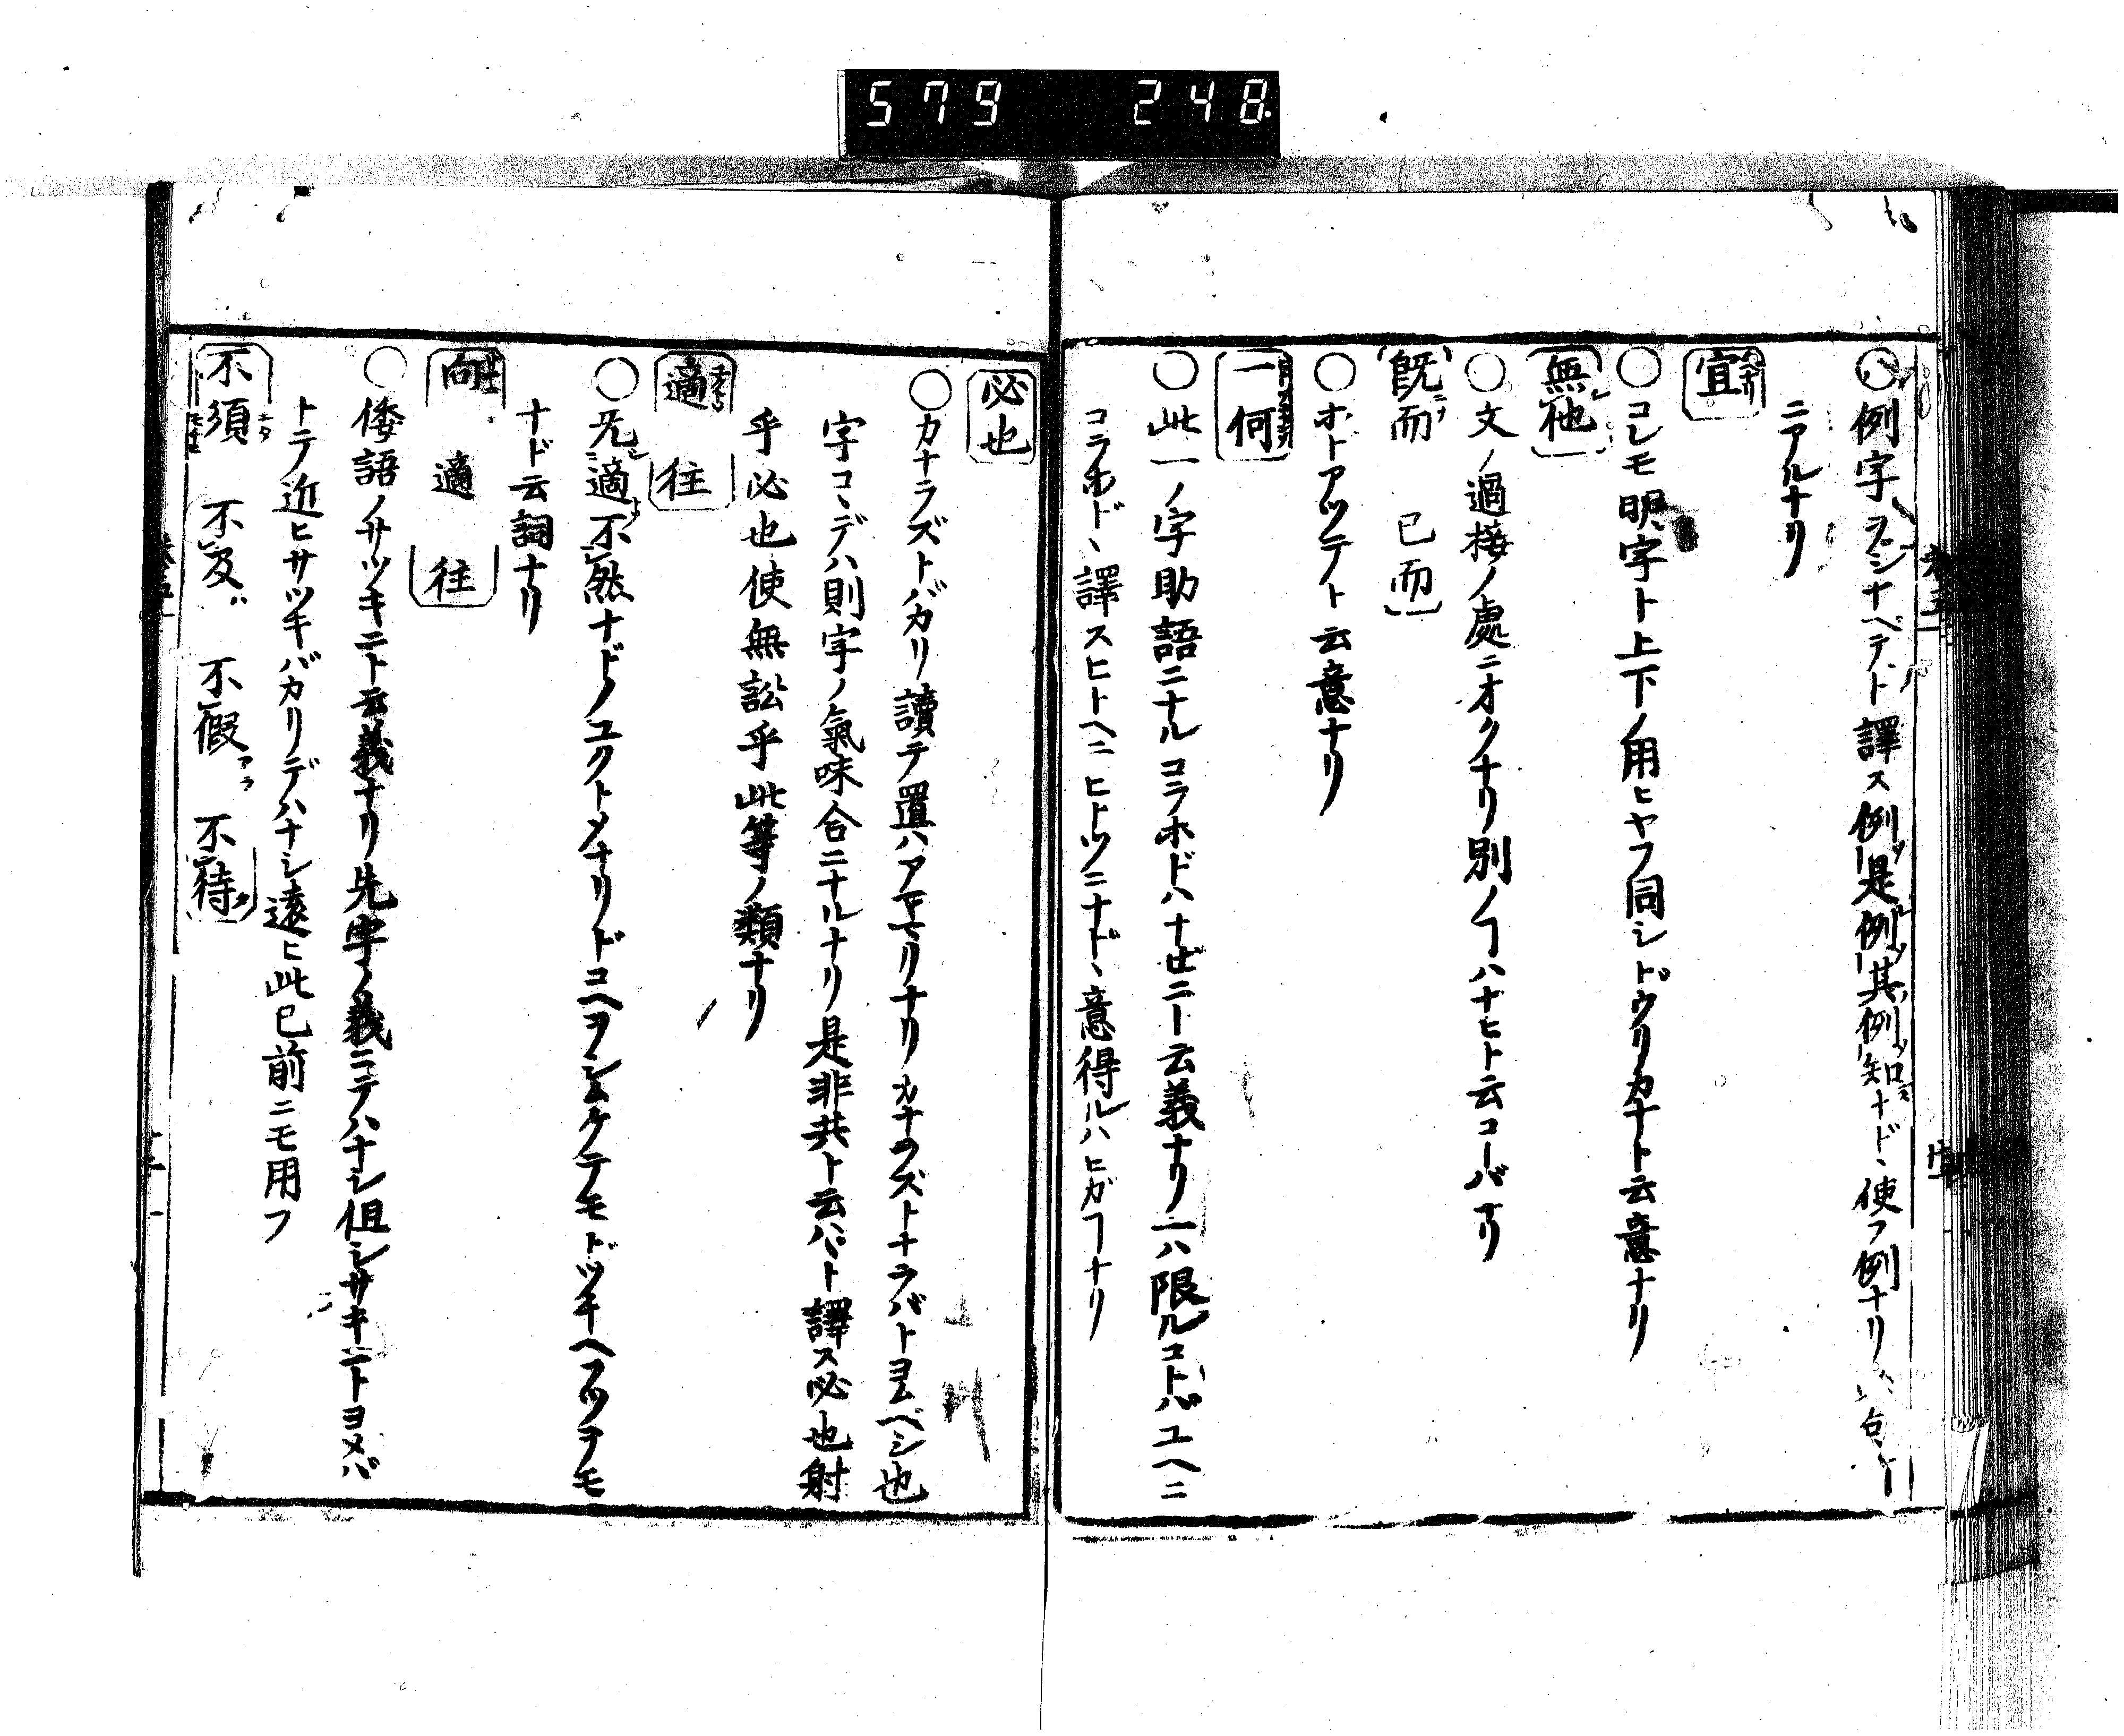 579 248
○例字ヲシナベテト譯ス例是例其例知ナド、使フ例ナリ
ニアルナリ
宜
○コレモ明字ト上下ノ用ヒヤフ同シドウリカナト云意ナリ
無他
○文ノ過接ノ處ニオクナリ別ノヿハナヒト云コーバナリ
既而 已而
○ホトアツテト云意ナリ
一何
○此一ノ字助語ニナルコラホドハナゼニ一云義ナリ一ハ限ルコトバユヘニ
コラホド、譯スヒトヘニヒトツニナド、意得ルハヒガヿナリ
必也
○カナラズトバカリ讀テ置ハアヤマリナリカナラズトナラバトヨムベシ也
字コヽデハ則字ノ氣味合ニナルナリ是非共ト云ハヾト譯ス必也射
乎必也使無訟乎此等ノ類ナリ
適 往
○无適不然ナドノユクトメナリドコヘヲシムケテモドツキヘフツテモ
ナド云詞ナリ
向 適 往
○倭語ノサツキニト云義ナリ先字ノ義ニテハナシ但シサキニトヨメバ
トテ近ヒサツキバカリデハナシ遠ヒ此已前ニモ用フ
不須 不及 不假 不待